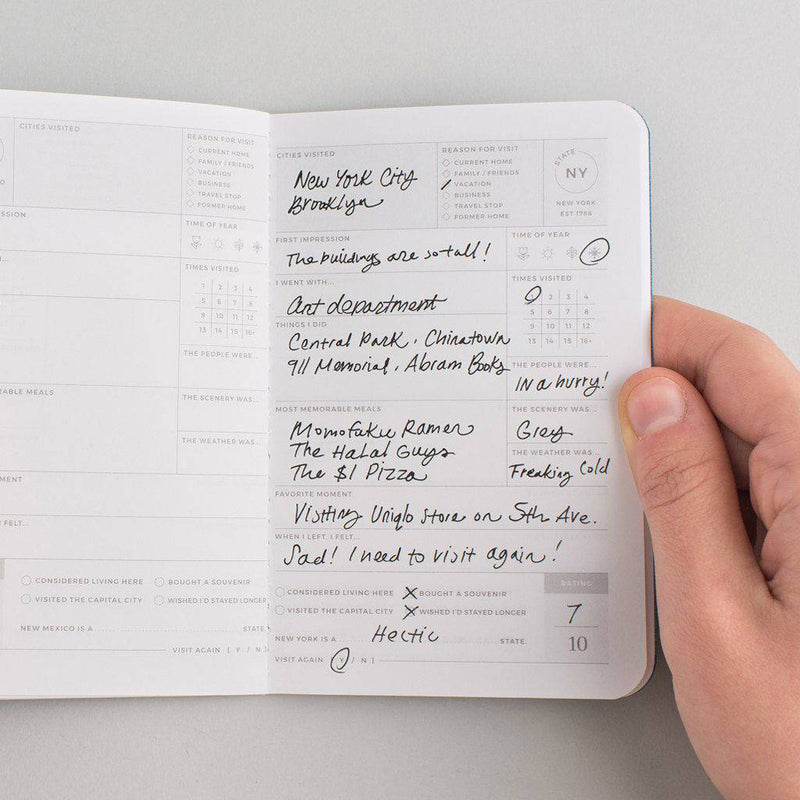 CITIES VISITED
REASON FOR VISIT
CURRENT HOME
FAMILY / FRIENDS
VACATION
BUSINESS
TRAVEL STOP
FORMER HOME
TIME OF YEAR
TIMES VISITED
1 2 3 4
5 6 7 8
9 10 11 12
13 14 15 16+
THE PEOPLE WERE...
MEALS
THE SCENERY WAS...
THE WEATHER WAS...
FELT...
CONSIDERED LIVING HERE
BOUGHT A SOUVENIR
VISITED THE CAPITAL CITY
WISHED I'D STAYED LONGER
NEW MEXICO IS A STATE.
VISIT AGAIN [ Y / N ]
CITIES VISITED
New York City
Brooklyn
REASON FOR VISIT
CURRENT HOME
FAMILY / FRIENDS
VACATION
BUSINESS
TRAVEL STOP
FORMER HOME
STATE
NY
NEW YORK
EST 1788
FIRST IMPRESSION
The buildings are so tall!
TIME OF YEAR
I WENT WITH...
Art department
TIMES VISITED
2 3 4
5 6 7 8
9 10 11 12
13 14 15 16+
THINGS I DID
Central Park, Chinatown
911 Memorial, Abram Books
THE PEOPLE WERE...
IN a hurry!
MOST MEMORABLE MEALS
Momofuku Ramen
The Halal Guys
The $1 Pizza
THE SCENERY WAS...
Grey
THE WEATHER WAS...
Freaking Cold
FAVORITE MOMENT
Visiting Uniqlo store on 5th Ave.
WHEN I LEFT, I FELT...
Sad! I need to visit again!
CONSIDERED LIVING HERE
BOUGHT A SOUVENIR
VISITED THE CAPITAL CITY
WISHED I'D STAYED LONGER
NEW YORK IS A Hectic STATE.
VISIT AGAIN [ Y / N ]
RATING
7
10